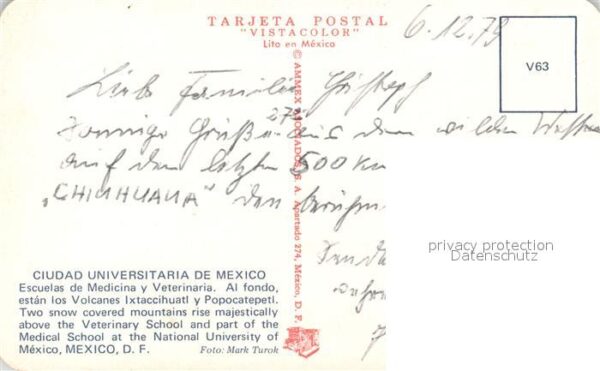 TARJETA POSTAL
"VISTACOLOR"
Lito en México
6.12.79
V63
Liebe Familie
27°
sonnige Grüße aus dem wilden Westen
auf den letzten 500 Km
"CHIHUAUA" den
© AMMEX ASOCIADOS, S. A. Apartado 274, México, D. F.
privacy protection
Datenschutz
CIUDAD UNIVERSITARIA DE MEXICO
Escuelas de Medicina y Veterinaria. Al fondo,
están los Volcanes Ixtaccihuatl y Popocatepetl.
Two snow covered mountains rise majestically
above the Veterinary School and part of the
Medical School at the National University of
México, MEXICO, D. F.
Foto: Mark Turok